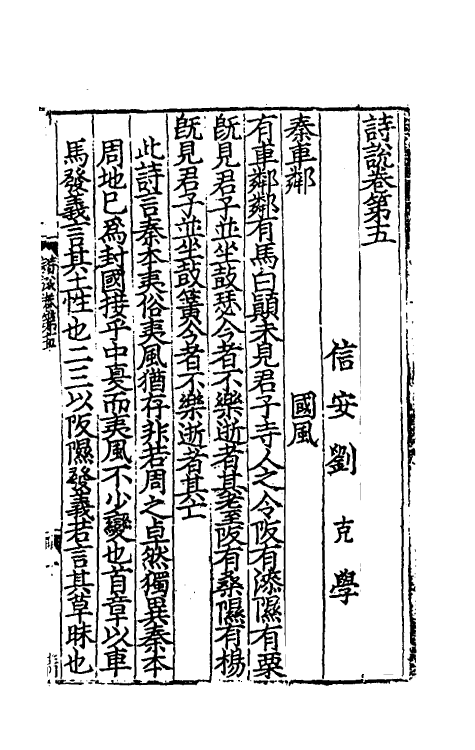 詩說卷第五
信安劉克學
秦車鄰　國風
有車鄰鄰有馬白顚未見君子寺人之令阪有漆隰有栗
旣見君子並坐鼓瑟今者不樂逝者其耋阪有桑隰有楊
旣見君子並坐鼓簧今者不樂逝者其亡
此詩言秦本夷俗夷風猶存非若周之卓然獨異秦本
周地巳爲封國接乎中夏而夷風不少變也首章以車
馬發義言其土性也二三以阪隰發義若言其草昧也
詩說卷第五